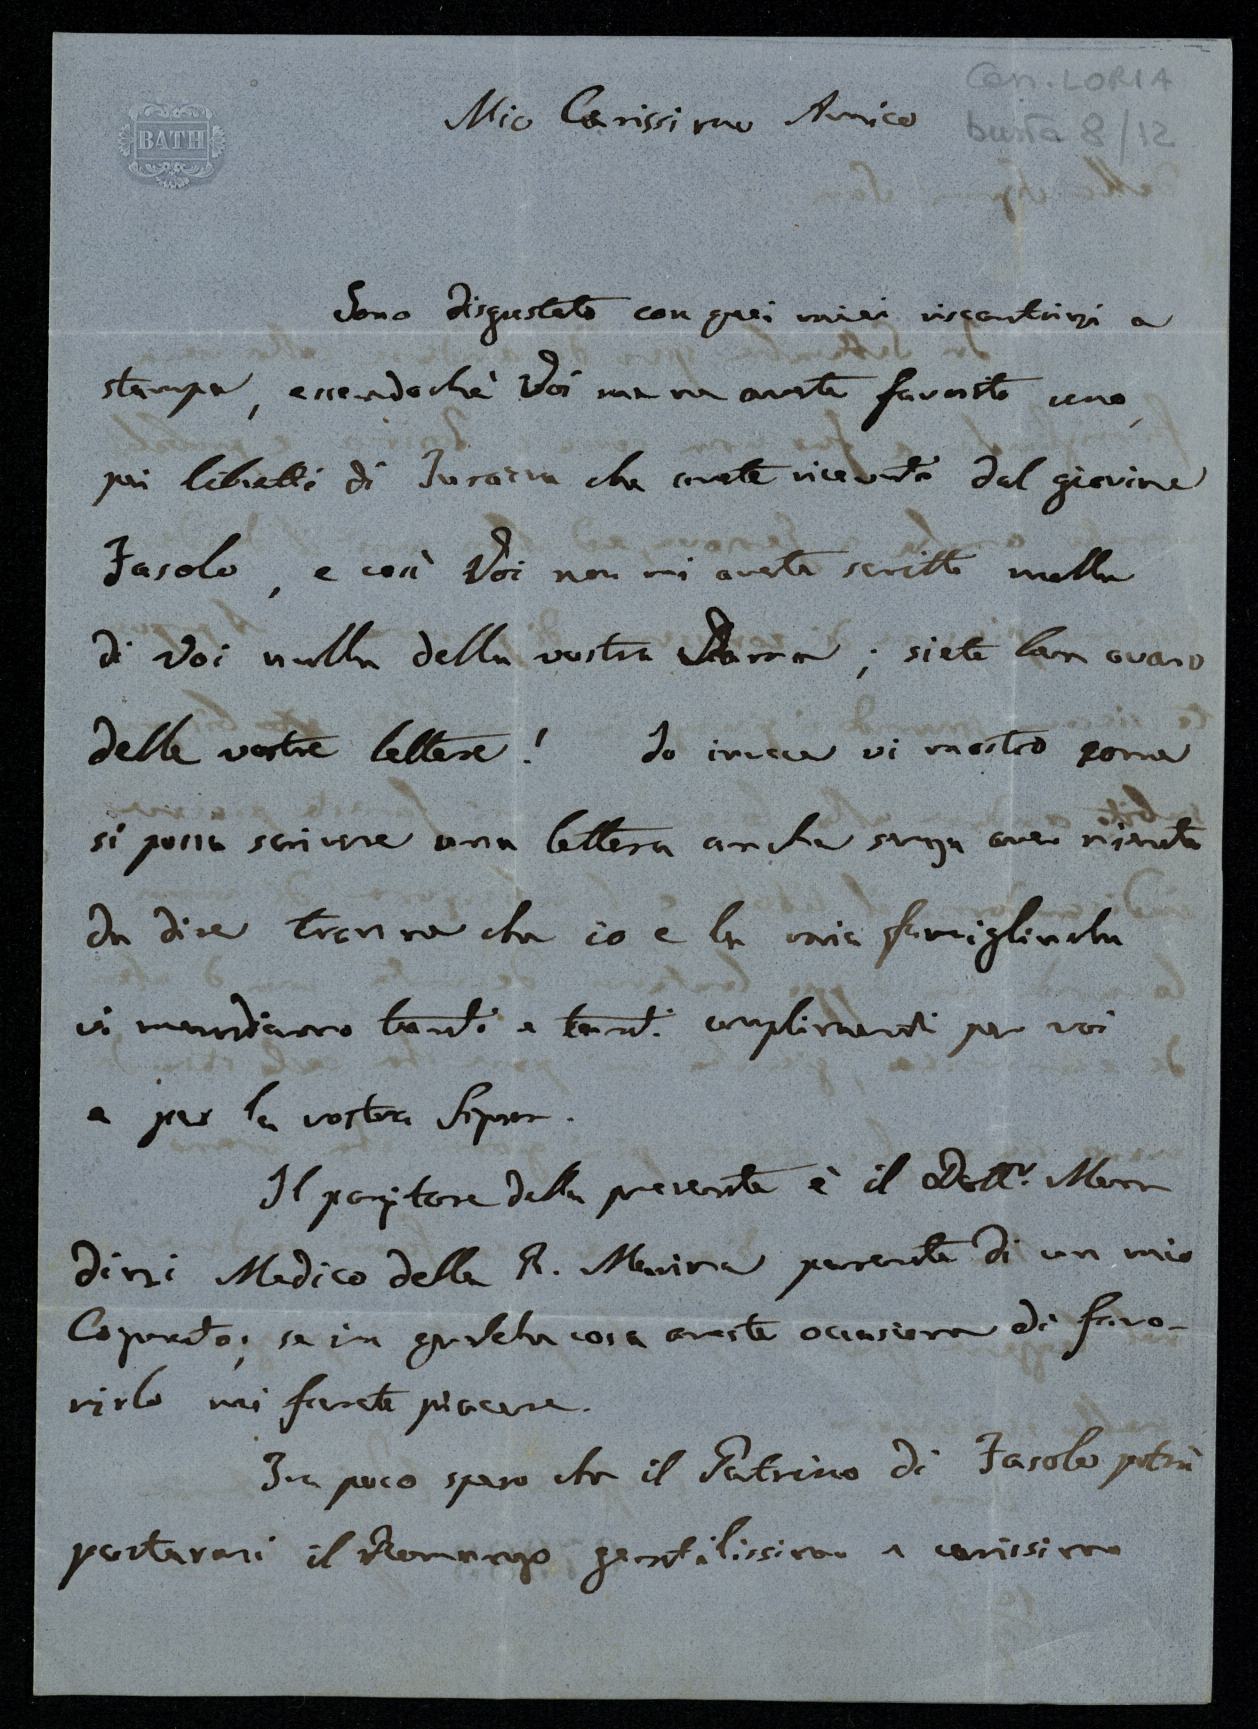 BATH
Con. LORIA
busta 8/12
Mio Carissimo Amico
Sono disgustato con quei miei riscontrini a
stampa, essendochè Voi me ne avete favorito uno
pei libretti di che avete ricevuto dal giovine
Fasolo, e così Voi non mi avete scritto nulla
di Voi nulla della vostra Dama; siete ben avaro
delle vostre lettere! Io invece vi mostro come
si possa scrivere una lettera anche senza aver niente
da dire tranne che io e la mia famiglia
vi mandiamo tanti e tanti complimenti per voi
e per la vostra Signora.
Il portatore della presente è il Dottr. Man
dini Medico della R. Marina parente di un mio
Cognato; se in qualche cosa avete occasione di favo-
rirlo mi farete piacere.
Fra poco spero che il Patrino di Fasolo potrà
portarmi il gentilissimo e carissimo